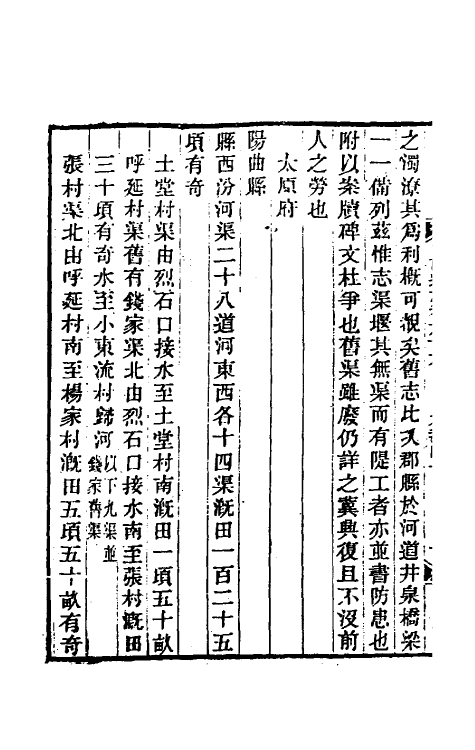 之濁潦其爲利概可覩矣舊志比次郡縣於河道井泉橋梁
一一備列茲惟志渠堰其無渠而有隄工者亦並書防患也
附以案牘碑文杜爭也舊渠雖廢仍詳之冀興復且不沒前
人之勞也
太原府
陽曲縣
縣西汾河渠二十八道河東西各十四渠漑田一百二十五
頃有奇
土堂村渠由烈石口接水至土堂村南漑田一頃五十畝
呼延村渠舊有錢家渠北由烈石口接水南至張村漑田
三十頃有奇水至小東流村歸河以下九渠並錢家舊渠
張村渠北由呼延村南至楊家村漑田五頃五十畝有奇